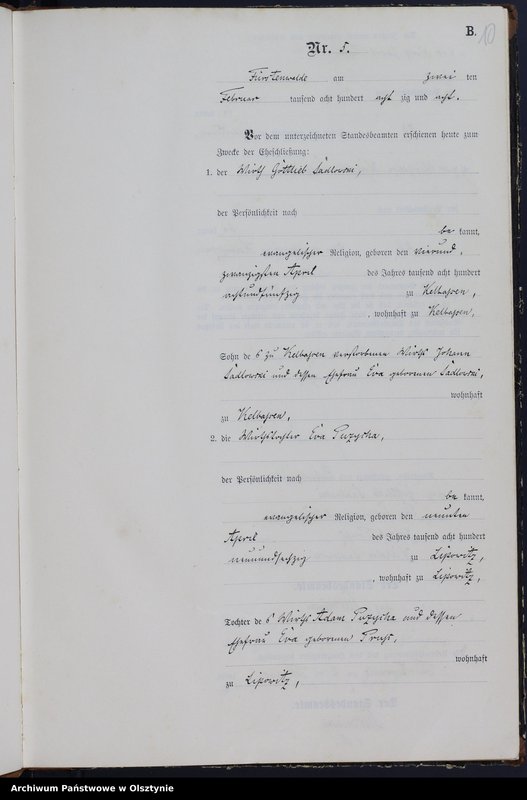 B.
10
Nr. 5.
Fürstenwalde am zwei ten
Februar tausend acht hundert acht zig und acht.
Vor dem unterzeichneten Standesbeamten erschienen heute zum
Zwecke der Eheschließung:
1. der Wirth Gottlieb Sadlowski,
der Persönlichkeit nach
be kannt,
evangelischer Religion, geboren den vierund,
zwanzigsten April des Jahres tausend acht hundert
achtundfünfzig zu Kelbassen,
, wohnhaft zu Kelbassen,
Sohn de s zu Kelbassen verstorbenen Wirths Johann
Sadlowski und dessen Ehefrau Eva geborenen Sadlowski,
wohnhaft
zu Kelbassen,
2. die Wirthstochter Eva Puzycha,
der Persönlichkeit nach
be kannt,
evangelischer Religion, geboren den neunten
April des Jahres tausend acht hundert
neunundsechzig zu Lipowitz,
, wohnhaft zu Lipowitz,
Tochter de s Wirths Adam Puzycha und dessen
Ehefrau Eva geborenen
wohnhaft
zu Lipowitz,
Archiwum Państwowe w Olsztynie